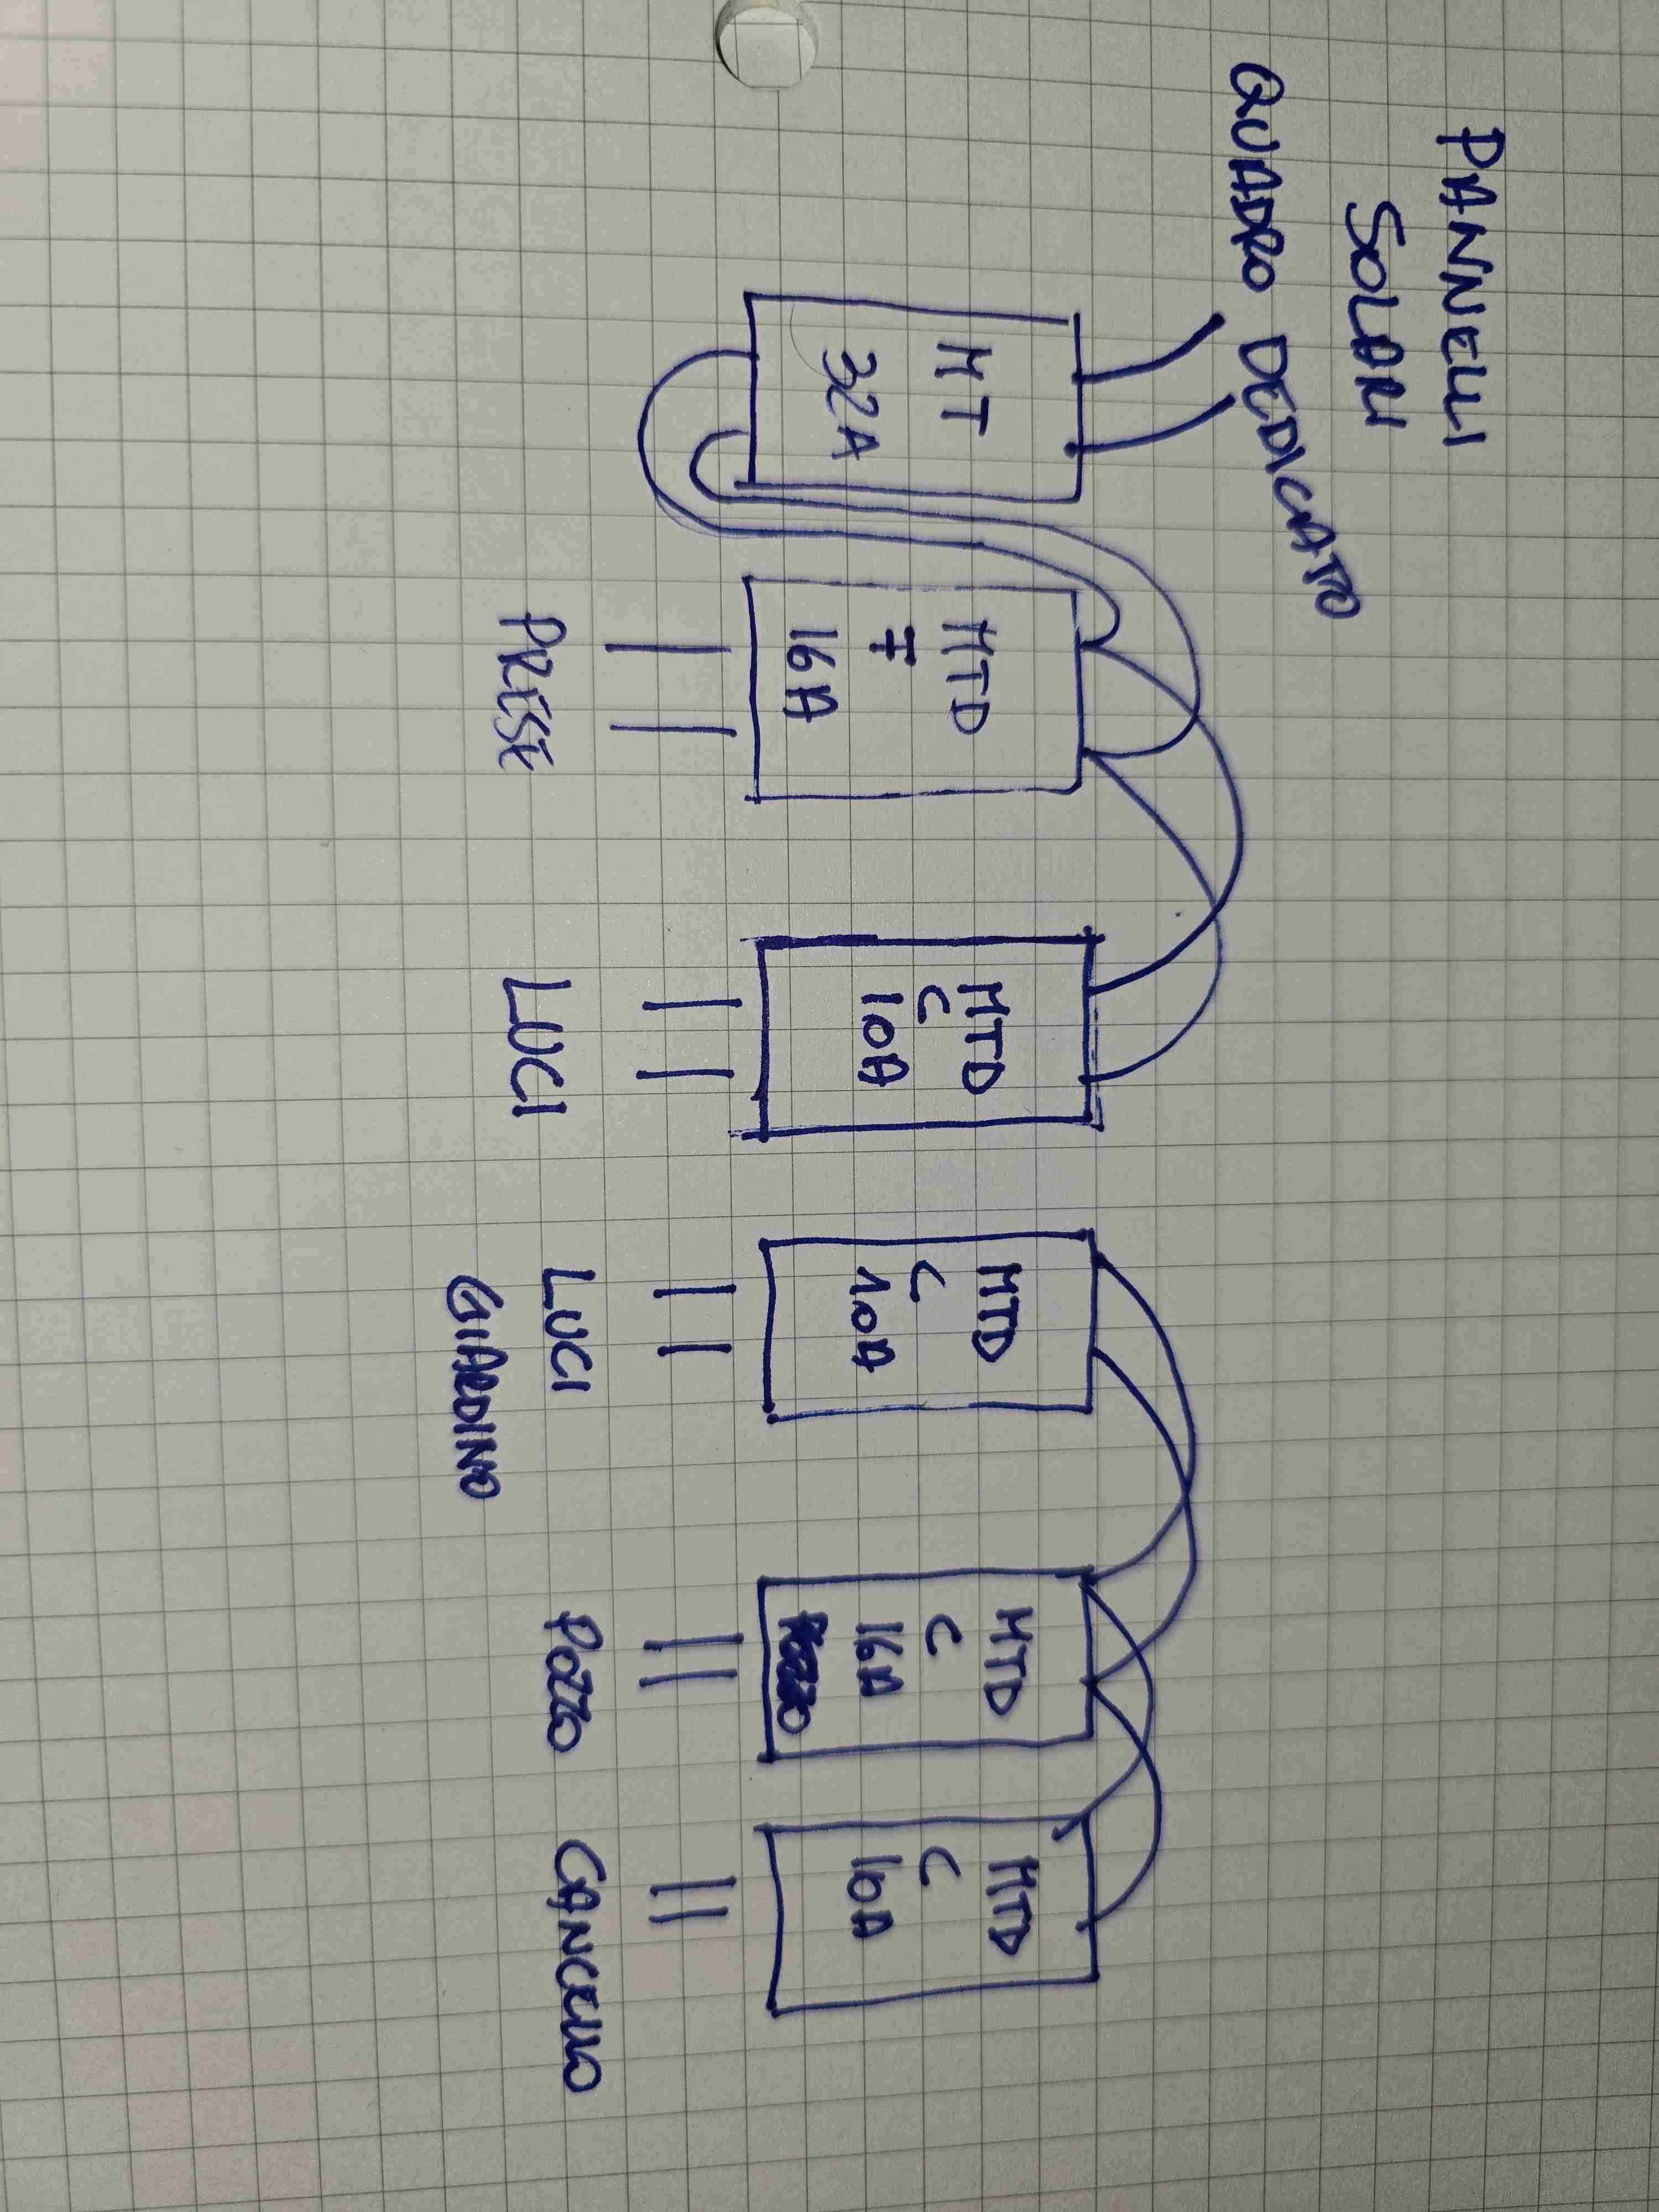 PANNELLI
SOLARI
QUADRO DEDICATO
MT
32A
MTD
16A
PRESE
MTD
C
10A
LUCI
MTD
C
10A
LUCI
GIARDINO
MTD
C
16A
POZZO
MTD
C
10A
CANCELLO